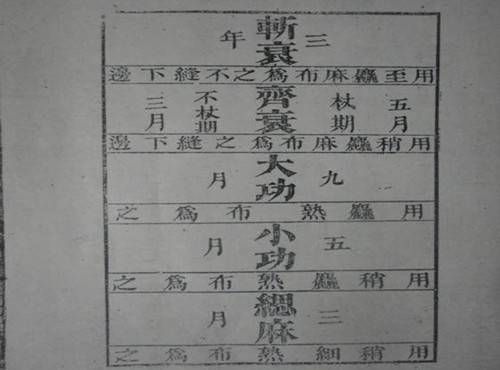 斬衰
三年
用至麤麻布為之不縫下邊
五月
杖期
齊衰
不杖期
三月
用稍麤麻布為之縫下邊
大功
九月
用麤熟布為之
小功
五月
用稍麤熟布為之
緦麻
三月
用稍細熟布為之